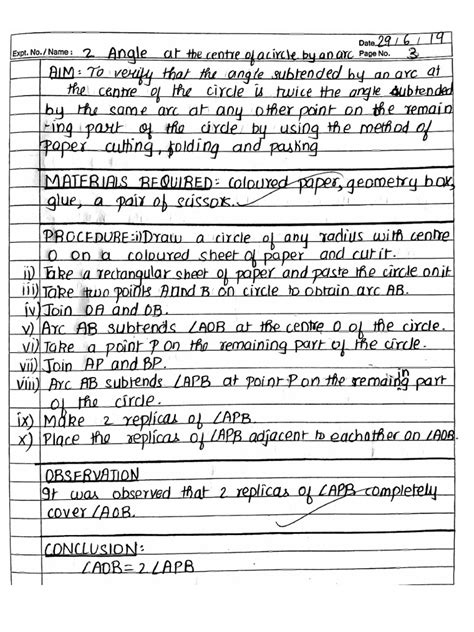 Date 29/6/19
Expt. No./Name : 2 Angle at the centre of a circle by an arc Page No. 3
AIM: To verify that the angle subtended by an arc at
the centre of the circle is twice the angle subtended
by the same arc at any other point on the remain
-ing part of the circle by using the method of
paper cutting, folding and pasting
MATERIALS REQUIRED: coloured paper, geometry box,
glue, a pair of scissors.
PROCEDURE: i) Draw a circle of any radius with centre
O on a coloured sheet of paper and cut it.
ii) Take a rectangular sheet of paper and paste the circle on it
iii) Take two points A and B on circle to obtain arc AB.
iv) Join OA and OB.
v) Arc AB subtends ∠AOB at the centre O of the circle.
vi) Take a point P on the remaining part of the circle.
vii) Join AP and BP.
viii) Arc AB subtends ∠APB at point P on the remaining part
of the circle.
ix) Make 2 replicas of ∠APB.
x) Place the replicas of ∠APB adjacent to eachother on ∠AOB.
OBSERVATION
It was observed that 2 replicas of ∠APB completely
cover ∠AOB.
CONCLUSION:
∠AOB = 2 ∠APB